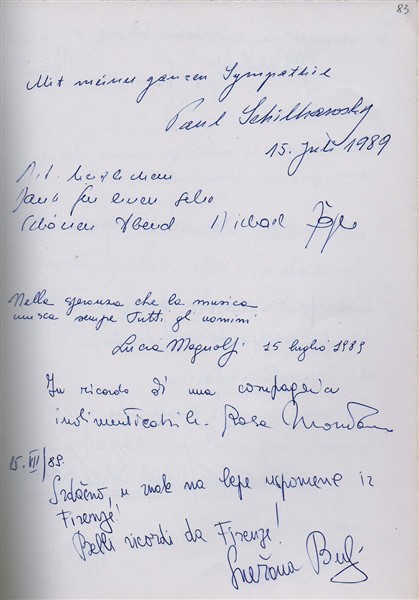 83
Mit meiner ganzen Sympathie
Paul
15. Juli 1989
Mit herzlichem
Dank für einen sehr
schönen Abend Michael
Nella speranza che la musica
unisca sempre tutti gli uomini
Lucia Magnolfi 15 luglio 1989
In ricordo di una compagnia
indimenticabile. Rosa
15.VII/89.
Srdačno, u znak na lepe uspomene iz
Firenze!
Belli ricordi da Firenze!
Snežana